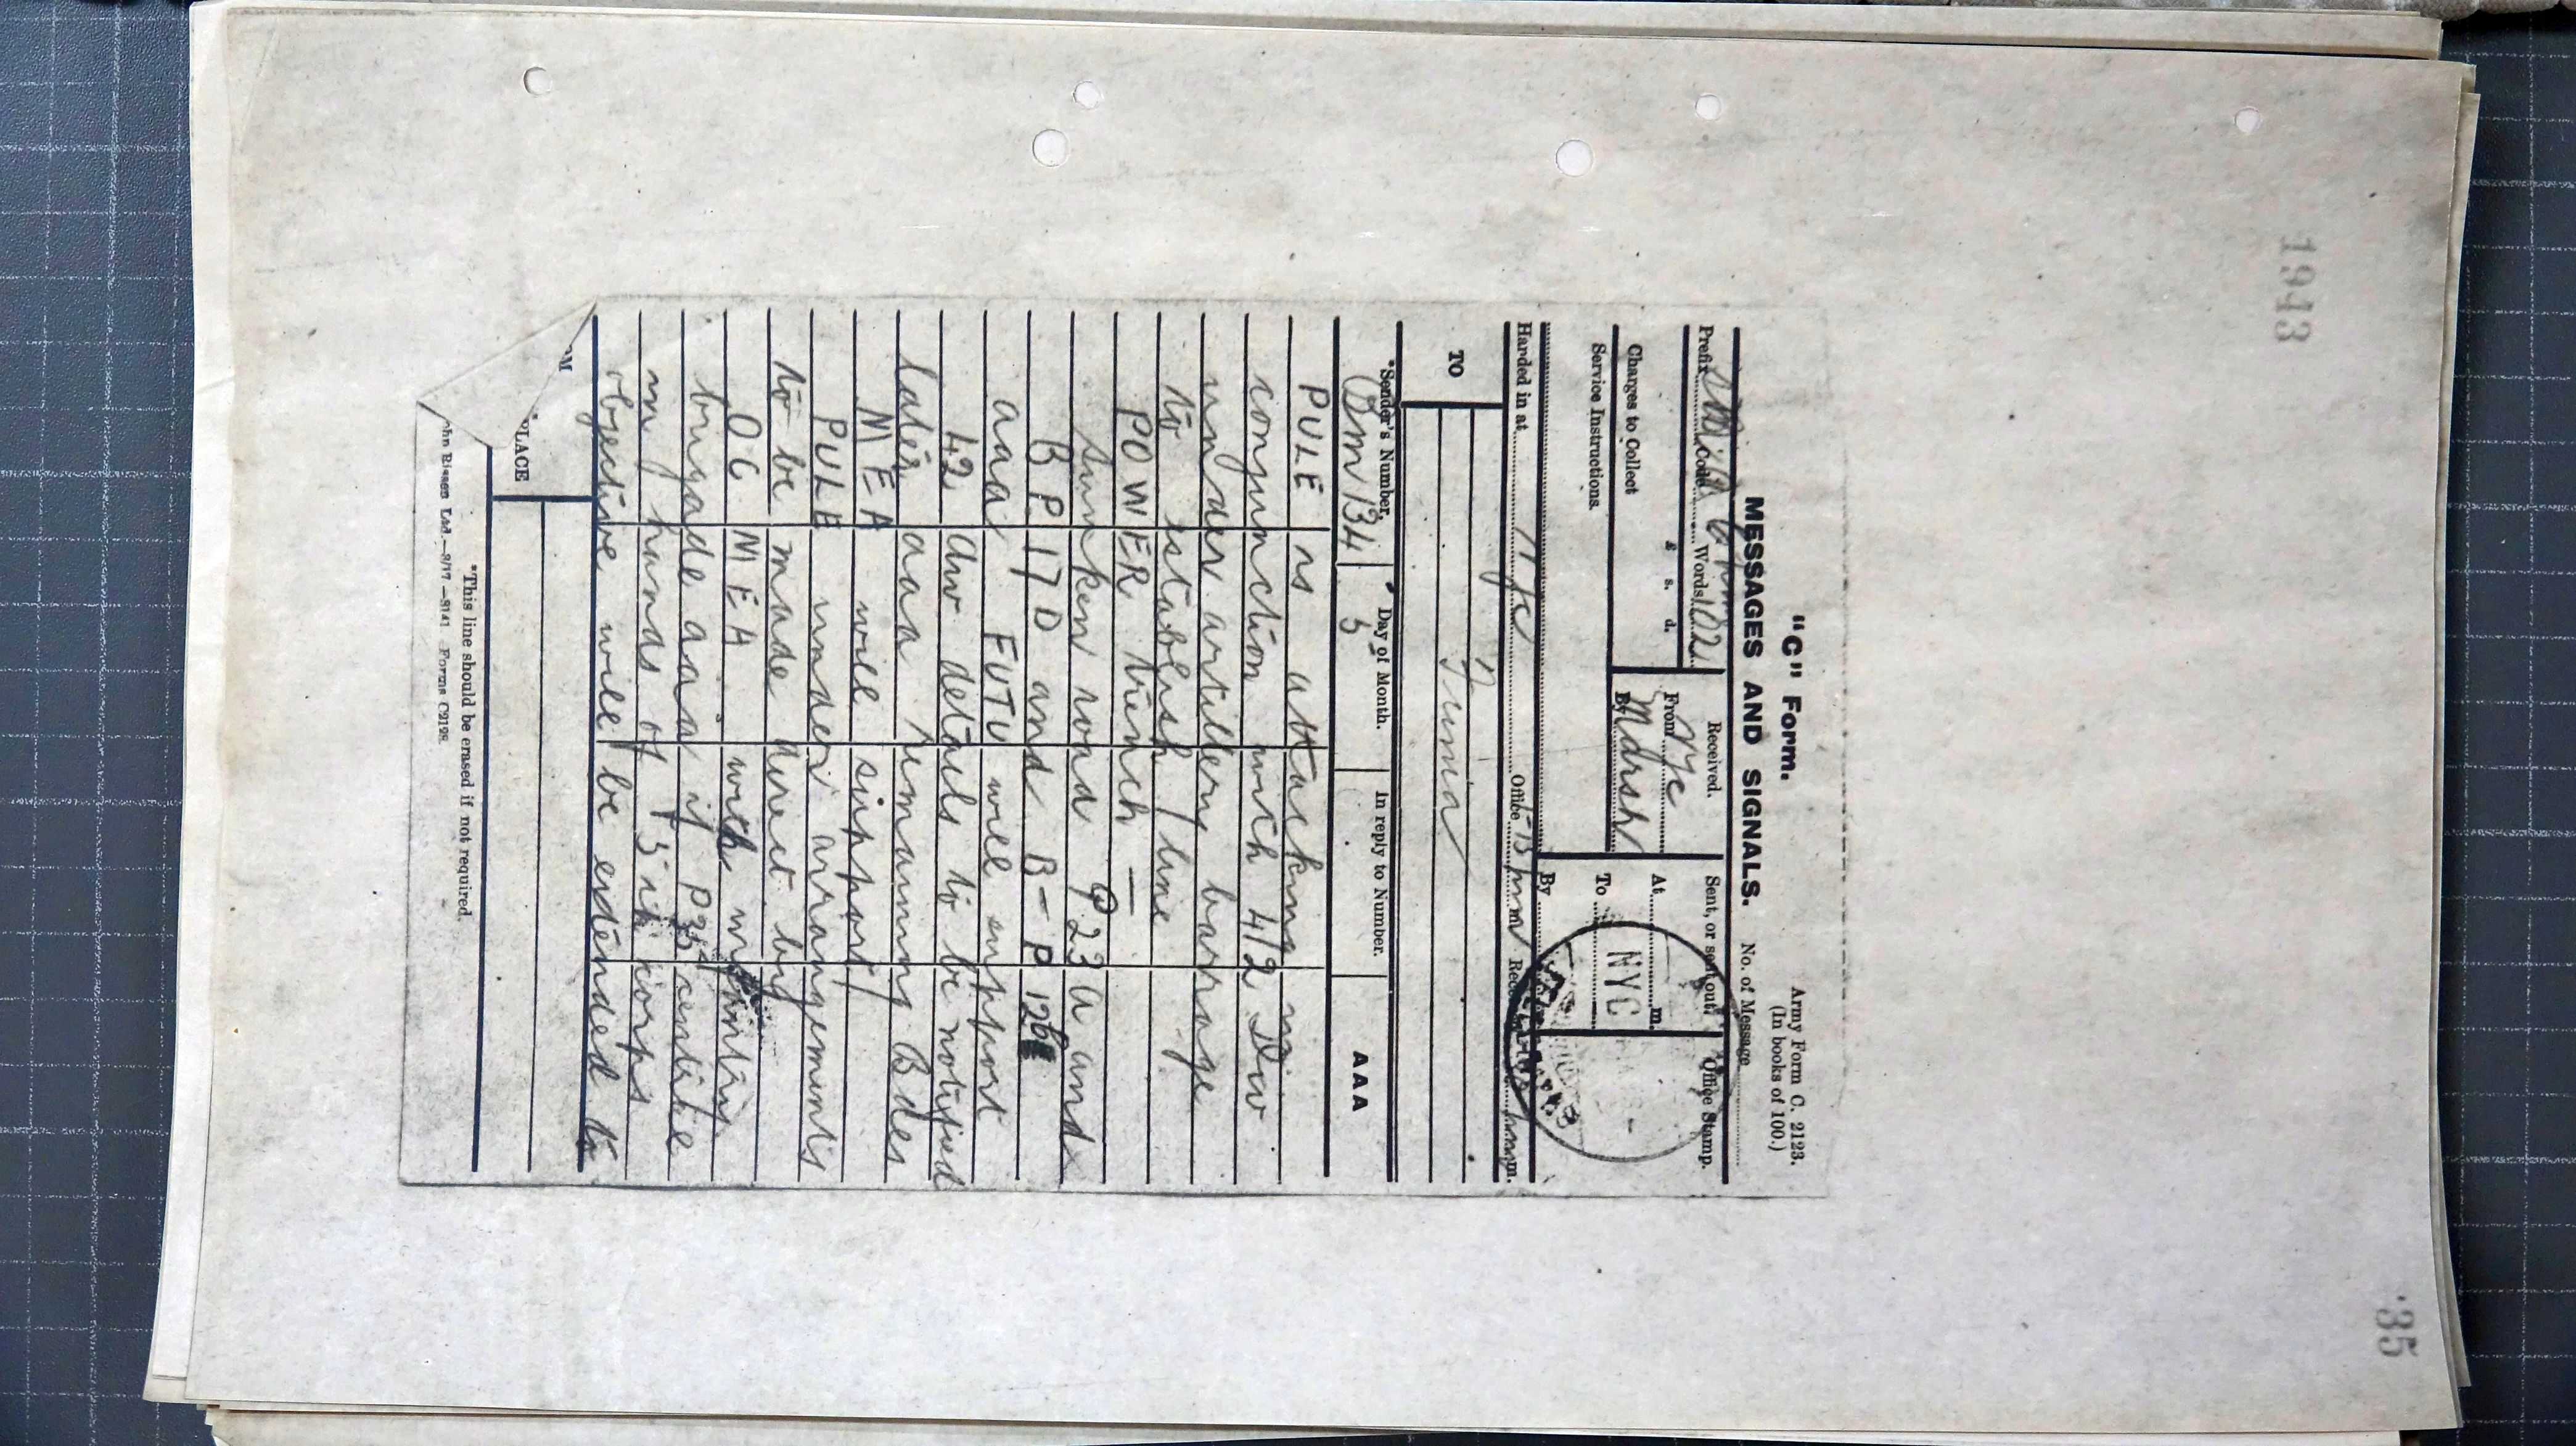 1943
35
"C" Form.
Army Form C. 2123.
(In books of 100.)
MESSAGES AND SIGNALS.
No. of Message
Prefix Code Words 102
Received.
From NYC
By Marsh
Sent, or sent out.
At m.
To
By
Office Stamp.
NYC
Charges to Collect
£ s. d.
Service Instructions.
Handed in at NYC Office m. Received m.
TO
Numa
*Sender's Number.
Day of Month.
In reply to Number.
AAA
Bm 134
5
PULE is attacking in
conjunction with 42 Div
under artillery barrage
to establish line
POWER trench —
sunken road P 23 A and
B P 17 D and B - P 12
aaa FUTU will support
42 div details to be notified
later aaa remaining Bdes
MEA will support
PULE under arrangements
to be made direct by
OC MEA with infantry
brigade aaa if P 35 central
in hands of 5th corps
objective will be extended to
PLACE
*This line should be erased if not required.
Forms C2123.